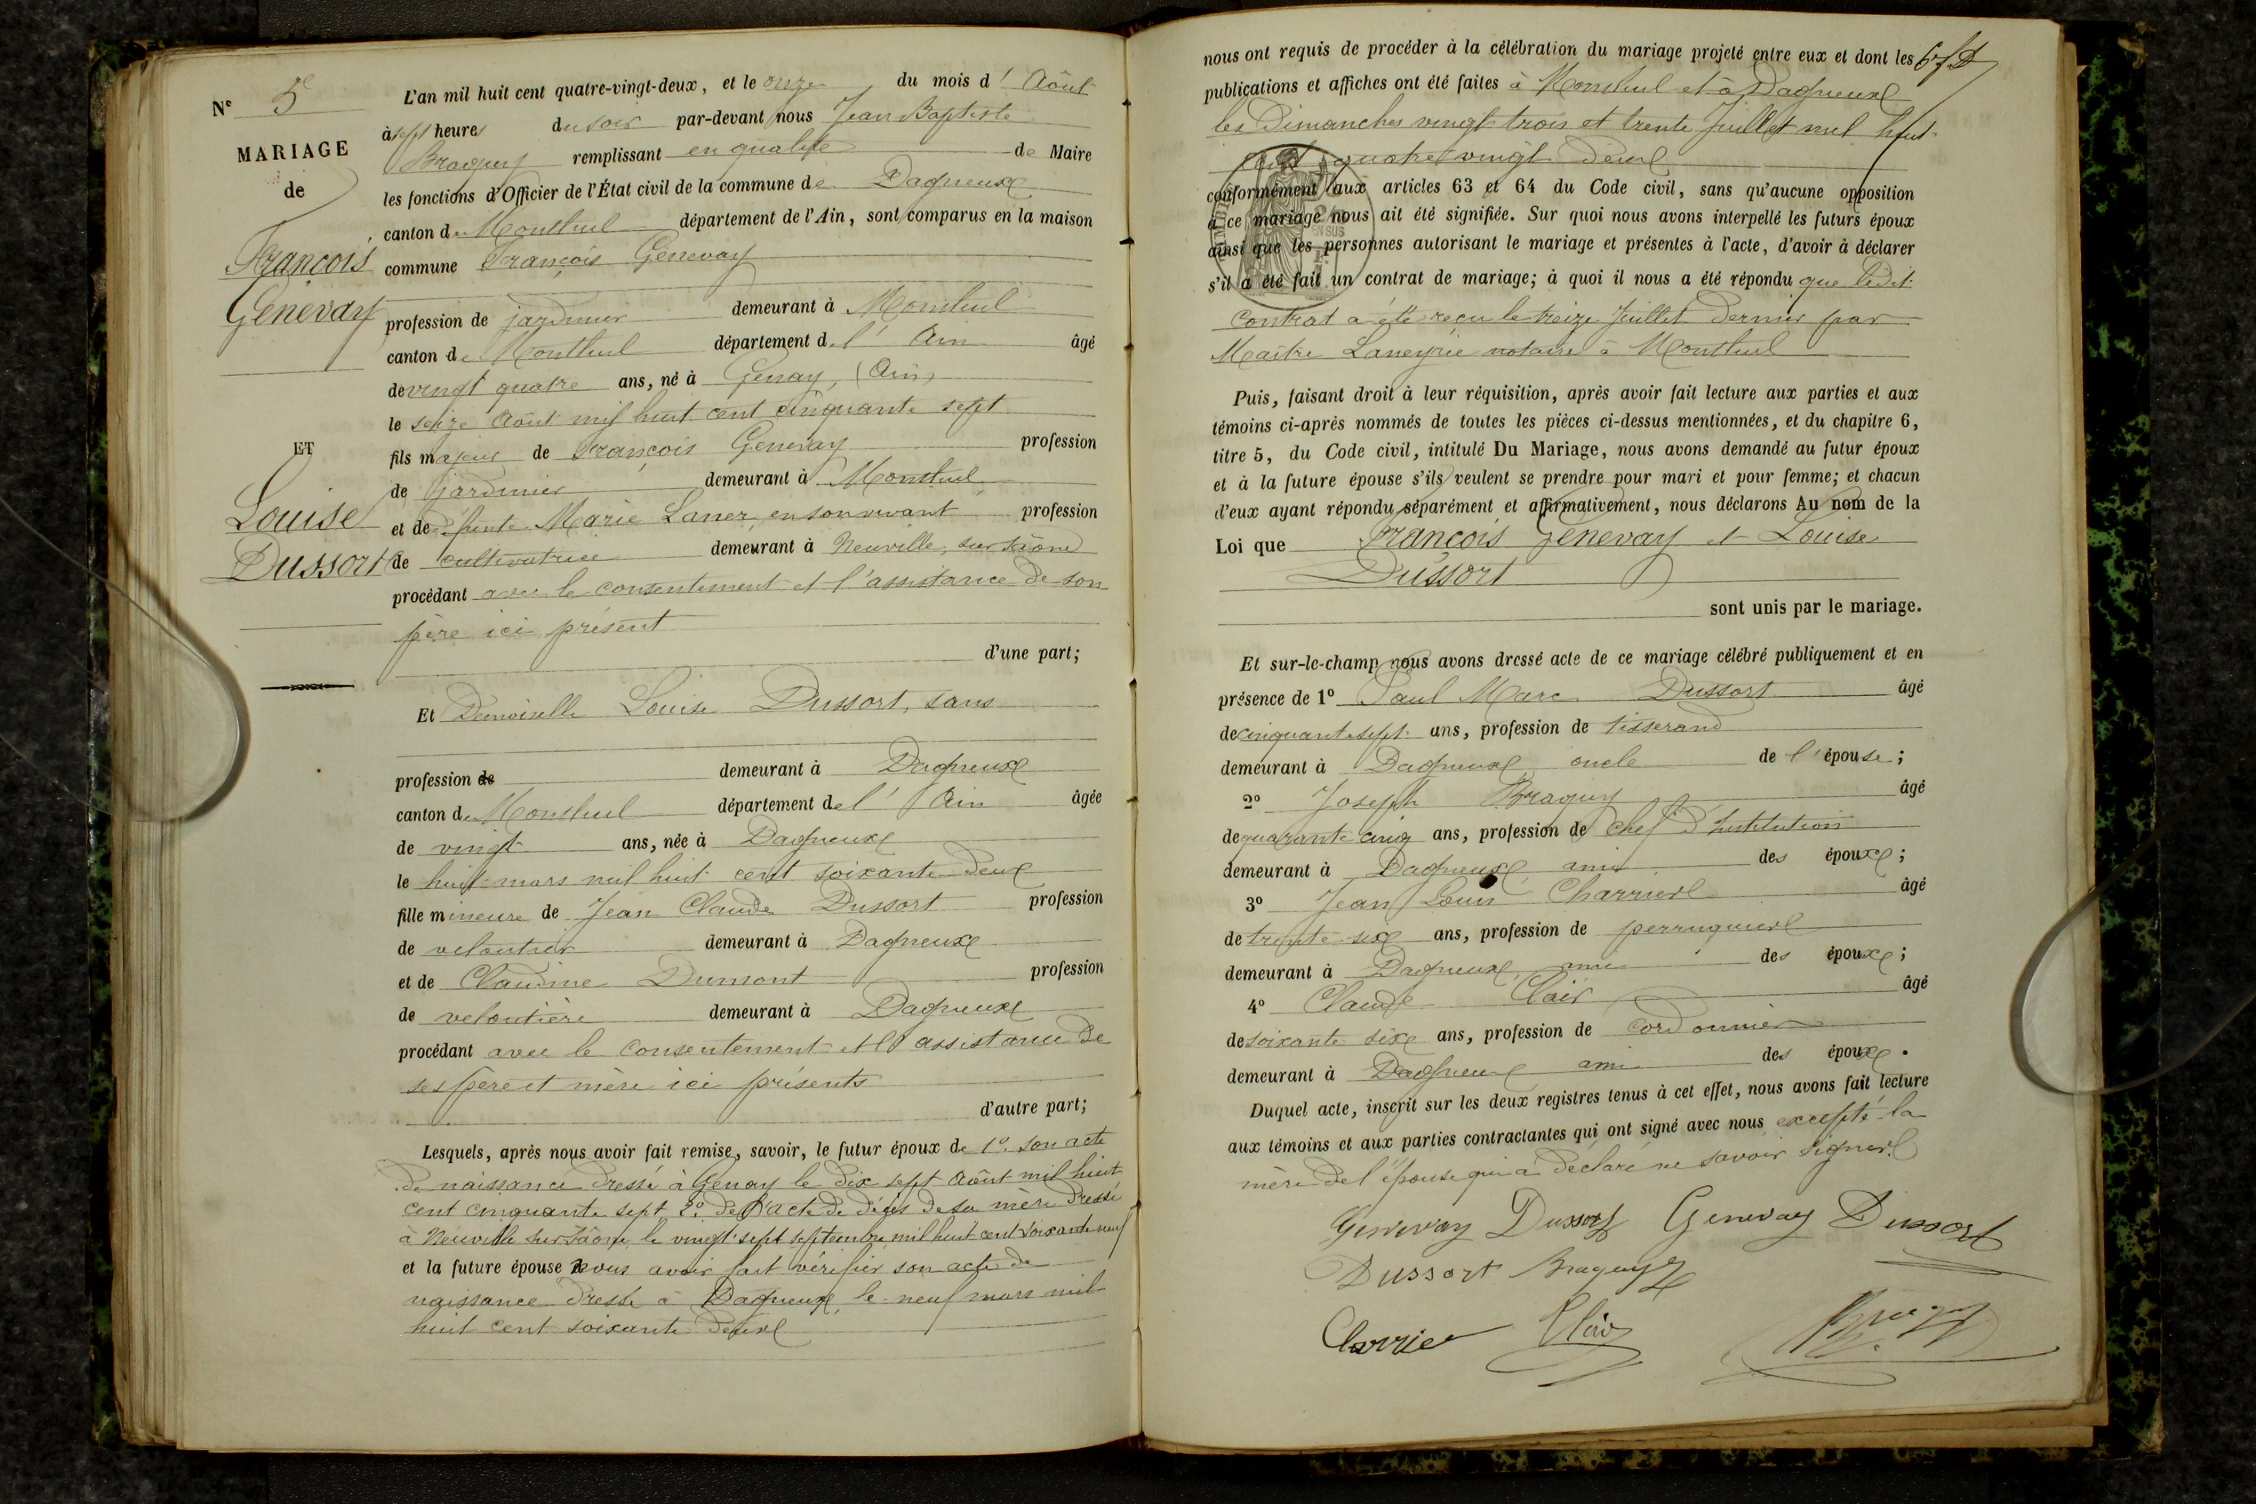 N° 5
MARIAGE
de
François
Genevay
ET
Louise
Dussort
L'an mil huit cent quatre-vingt-deux, et le onze du mois d'Août
à sept heures du soir par-devant nous Jean Baptiste
Braguy remplissant en qualité de Maire
les fonctions d'Officier de l'État civil de la commune de Dagneux
canton de Montluel département de l'Ain, sont comparus en la maison
commune François Genevay
profession de jardinier demeurant à Montluel
canton de Montluel département de l'Ain âgé
de vingt quatre ans, né à Genay, (Ain)
le seize Août mil huit cent cinquante sept
fils majeur de François Genevay profession
de jardinier demeurant à Montluel
et de défunte Marie Laner, en son vivant profession
de cultivatrice demeurant à Neuville sur Saône
procédant avec le consentement et l'assistance de son
père ici présent
d'une part;
Et Demoiselle Louise Dussort, sans
profession de demeurant à Dagneux
canton de Montluel département de l'Ain âgée
de vingt ans, née à Dagneux
le huit mars mil huit cent soixante deux
fille mineure de Jean Claude Dussort profession
de veloutier demeurant à Dagneux
et de Claudine Dumont profession
de veloutière demeurant à Dagneux
procédant avec le consentement et l'assistance de
ses père et mère ici présents
d'autre part;
Lesquels, après nous avoir fait remise, savoir, le futur époux de 1° son acte
de naissance dressé à Genay le dix sept Août mil huit
cent cinquante sept 2° de l'acte de décès de sa mère dressé
à Neuville sur Saône le vingt sept septembre mil huit cent soixante neuf
et la future épouse nous avoir fait vérifier son acte de
naissance dressé à Dagneux, le neuf mars mil
huit cent soixante deux
nous ont requis de procéder à la célébration du mariage projeté entre eux et dont les
publications et affiches ont été faites à Montluel et à Dagneux
les Dimanches vingt trois et trente Juillet mil huit
cent quatre vingt deux
conformément aux articles 63 et 64 du Code civil, sans qu'aucune opposition
à ce mariage nous ait été signifiée. Sur quoi nous avons interpellé les futurs époux
ainsi que les personnes autorisant le mariage et présentes à l'acte, d'avoir à déclarer
s'il a été fait un contrat de mariage; à quoi il nous a été répondu que ledit
contrat a été reçu le treize Juillet dernier par
Maître Laneyrie notaire à Montluel
Puis, faisant droit à leur réquisition, après avoir fait lecture aux parties et aux
témoins ci-après nommés de toutes les pièces ci-dessus mentionnées, et du chapitre 6,
titre 5, du Code civil, intitulé Du Mariage, nous avons demandé au futur époux
et à la future épouse s'ils veulent se prendre pour mari et pour femme; et chacun
d'eux ayant répondu séparément et affirmativement, nous déclarons Au nom de la
Loi que François Genevay et Louise
Dussort
sont unis par le mariage.
Et sur-le-champ nous avons dressé acte de ce mariage célébré publiquement et en
présence de 1° Paul Marc Dussort âgé
de cinquante sept ans, profession de tisserand
demeurant à Dagneux oncle de l'épouse;
2° Joseph Braguy âgé
de quarante cinq ans, profession de chef d'institution
demeurant à Dagneux, ami des époux;
3° Jean Louis Charrier âgé
de trente six ans, profession de perruquier
demeurant à Dagneux, ami des époux;
4° Claude Clair âgé
de soixante six ans, profession de cordonnier
demeurant à Dagneux ami des époux.
Duquel acte, inscrit sur les deux registres tenus à cet effet, nous avons fait lecture
aux témoins et aux parties contractantes qui ont signé avec nous excepté la
mère de l'épouse qui a déclaré ne savoir signer.
Genevay Dussort Genevay Dussort
Dussort Braguy
Charrier Clair Braguy